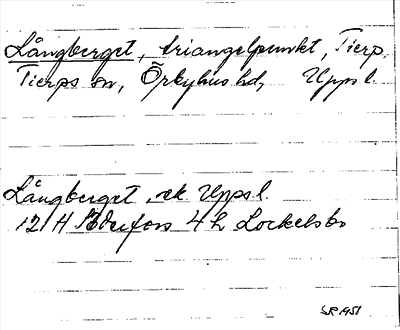 Långberget, triangelpunkt, Tierp,
Tierps sn, Örbyhus hd, Uppsl.
Långberget, ek. Uppsl.
12 H Söderfors 4 h Lockelsbo
S.R. 1951